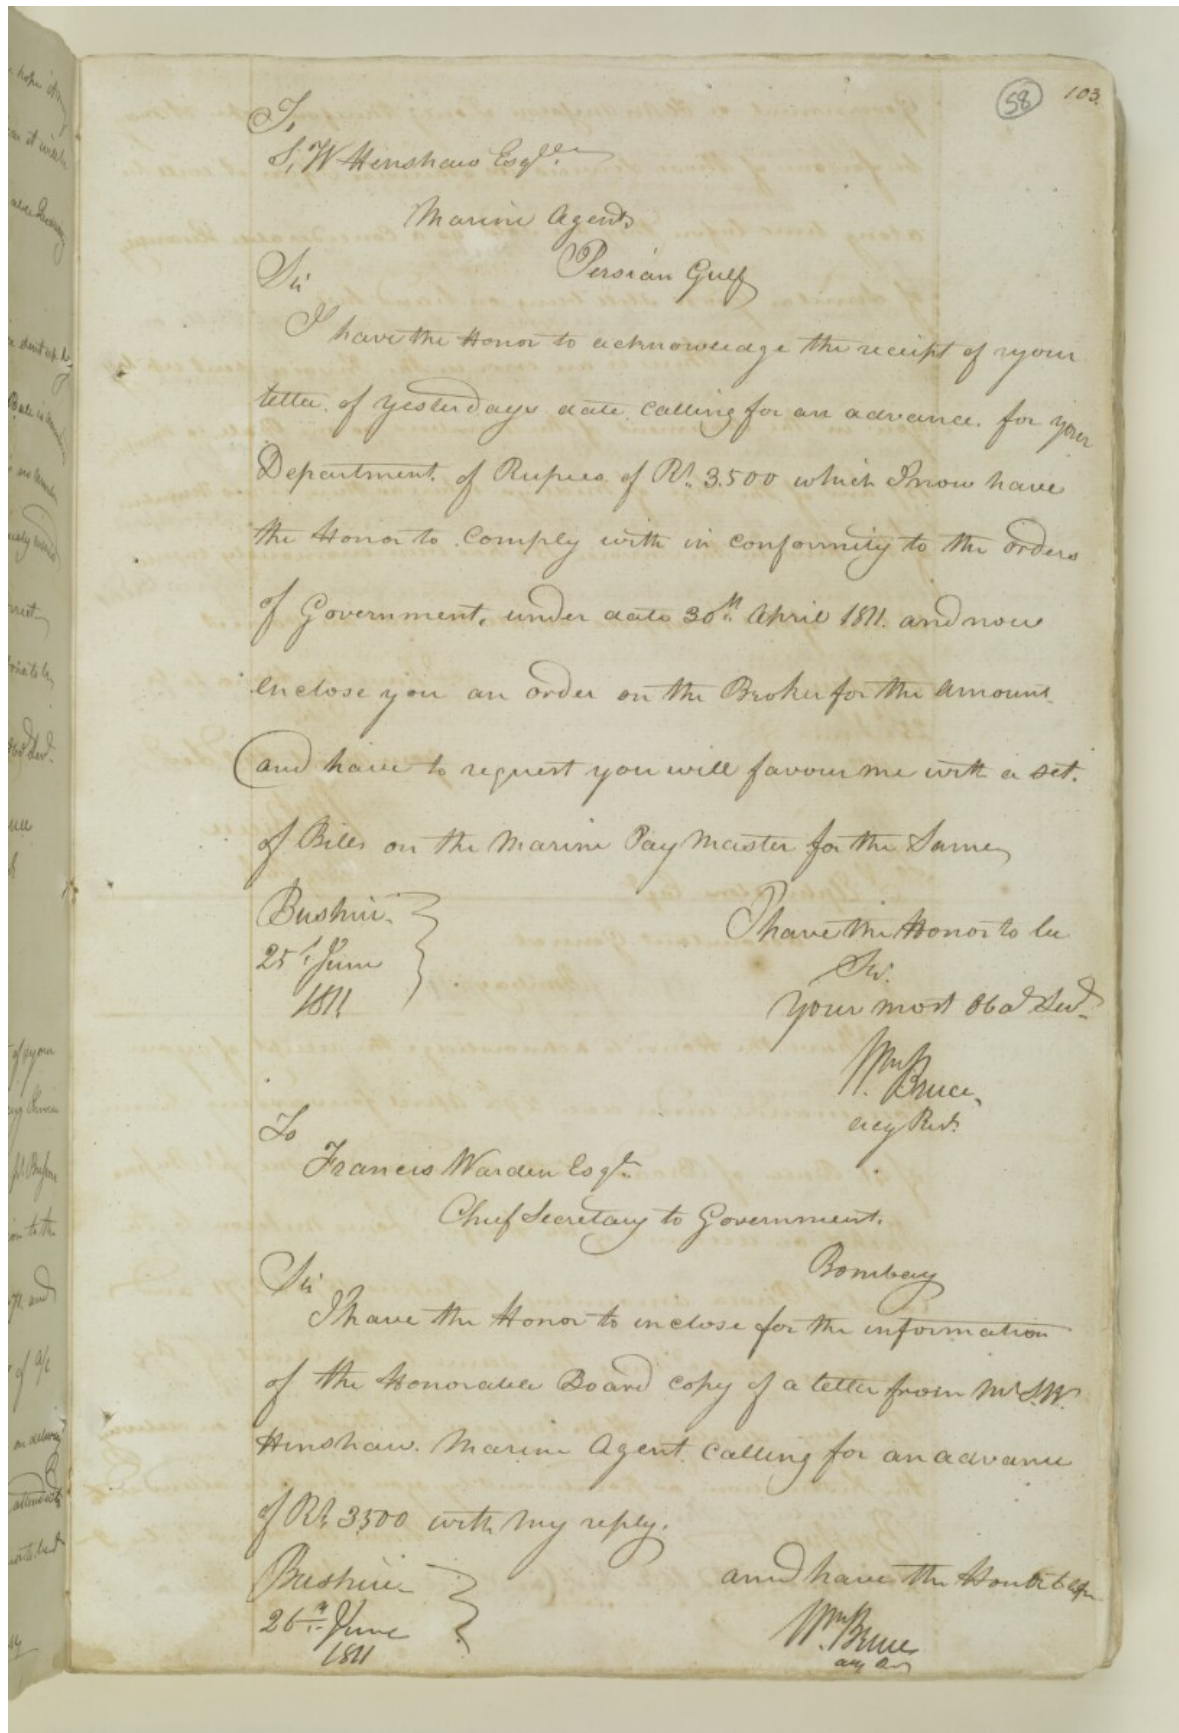 58 103.
To,
S, W Henshaw Esqre.
Marine Agent
Persian Gulf
Sir
I have the Honor to acknowledge the receipt of your
letter of yesterdays date calling for an advance for your
Department of Rupees of Rs. 3.500 which I now have
the Honor to Comply with in conformity to the orders
of Government, under date 30th April 1811. and now
enclose you an order on the Broker for the Amount
and have to request you will favour me with a set.
of Bills on the Marine Pay Master for the Same
Bushire.
25th June
1811
I have the Honor to be
Sir.
Your most Obdt Servt
Wm Bruce,
acg Rest.
To
Francis Warden Esqr.
Chief Secretary to Government.
Bombay
Sir
I have the Honor to inclose for the information
of the Honorable Board copy of a letter from Mr S.W.
Henshaw. Marine Agent. calling for an advance
of Rs. 3500 with my reply.
Bushire
26th June
1811
and have the Honor to be
Wm Bruce
acg Rest